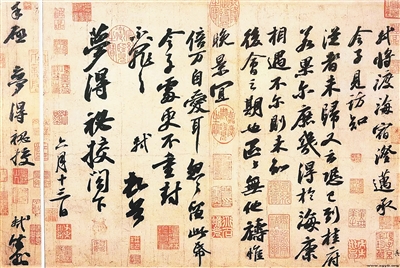 軾將渡海宿澄邁承
令子見訪知
從者未歸又云恐已到桂府
若果爾庶幾得於海康
相遇不爾則未知
後會之期也區區無他禱惟
晚景宜
倍萬自愛耳匆匆留此紙
令子處更不重封
不罪不罪
軾 頓首
夢得祕校閣下
六月十三日
手啟 夢得祕校 軾封